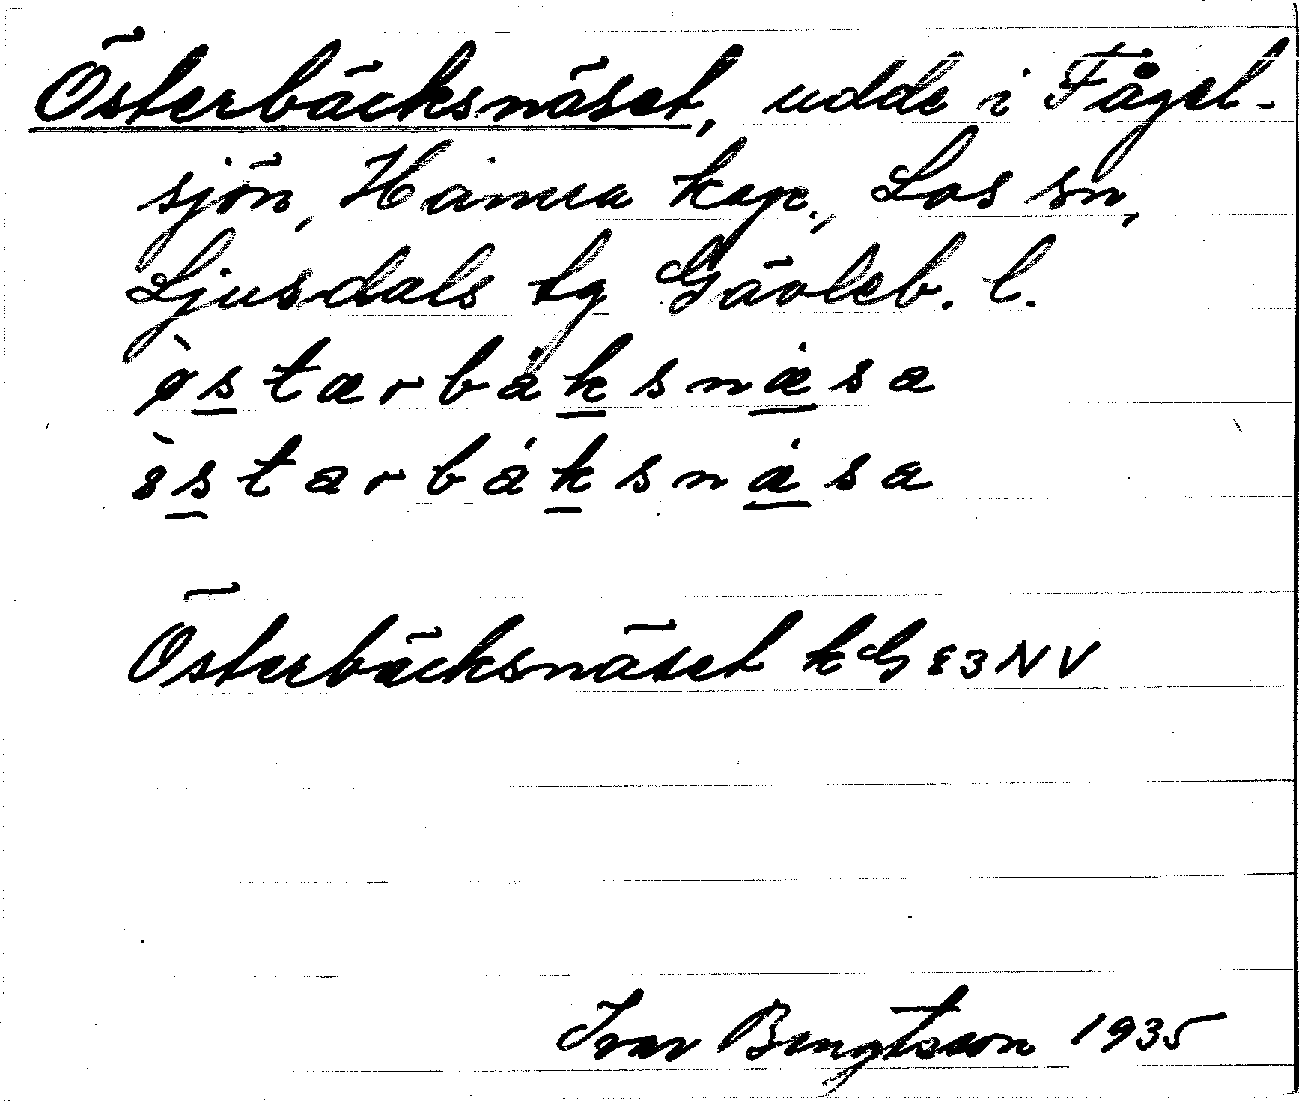 Österbäcksnäset, udde i Fågel-
sjön, Hamra kap., Los sn,
Ljusdals tg Gävleb. l.
ø̀stærbáksnæ̀sa
ɵ̀starbáksnása
Österbäcksnäset kG 83NV
Ivar Bengtsson 1935